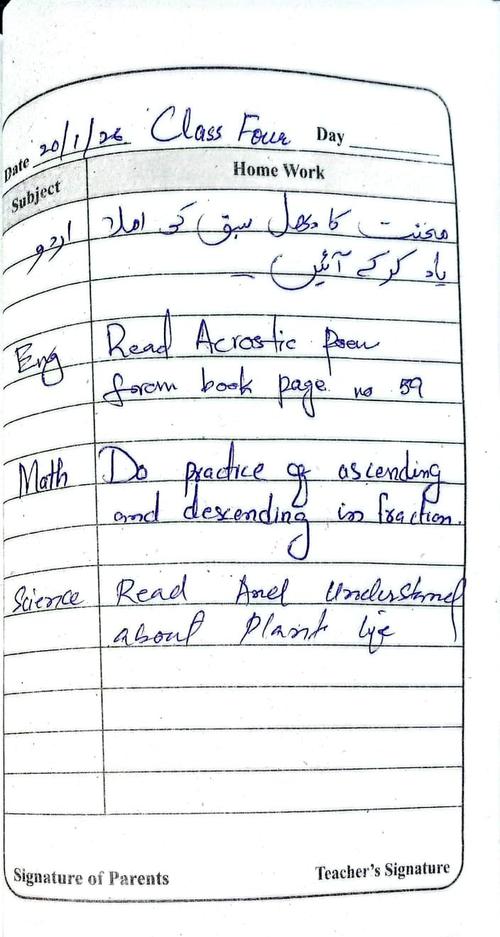 Date 20/1/26 Class Four Day
Subject Home Work
اردو محنت کا پھل سبق کی املا
یاد کرکے آئیں۔
Eng Read Acrostic Poem
forom book page no 59
Math Do practice of ascending
and descending in fraction.
Science Read And Understand
about Plant life
Signature of Parents Teacher's Signature